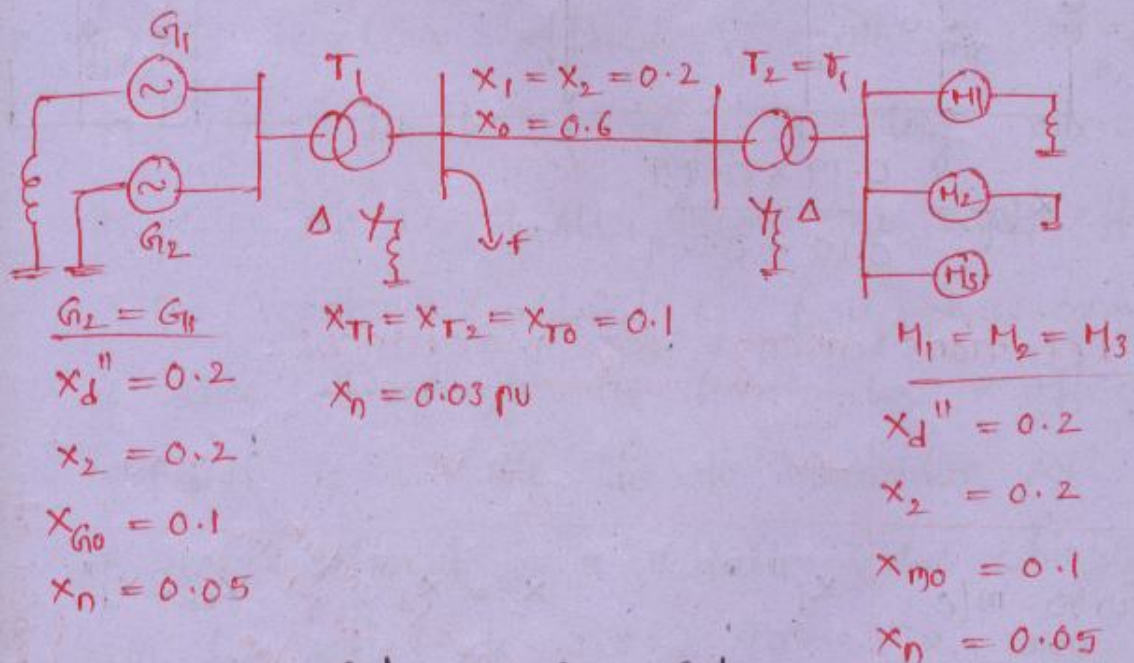 G1
T1
X1 = X2 = 0.2
X0 = 0.6
T2 = T1
M1
M2
M3
G2
Δ Y
f
Y Δ
G2 = G1
Xd'' = 0.2
X2 = 0.2
XG0 = 0.1
Xn = 0.05
XT1 = XT2 = XT0 = 0.1
Xn = 0.03 pu
M1 = M2 = M3
Xd'' = 0.2
X2 = 0.2
Xm0 = 0.1
Xn = 0.05